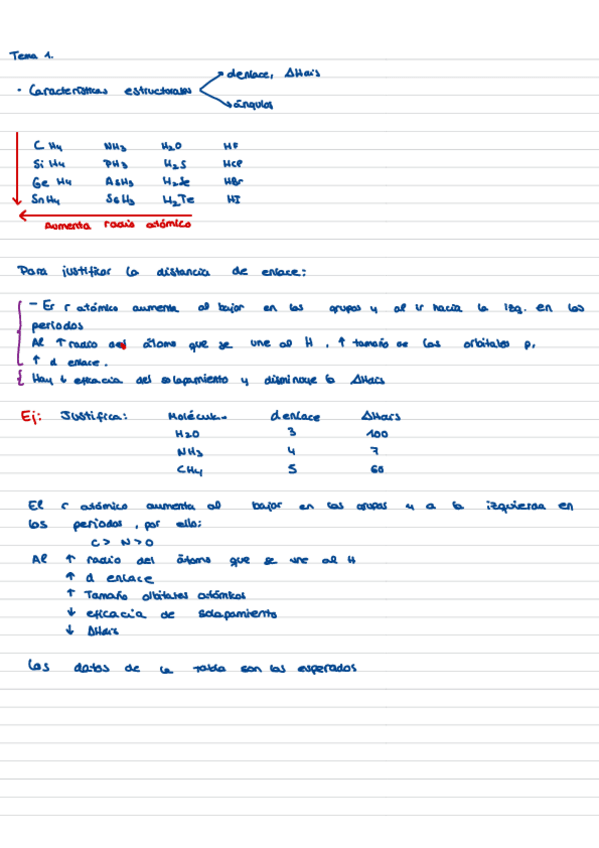 Tema 1.
d enlace, ΔHdis
· Características estructurales
ángulos
CH4 NH3 H2O HF
SiH4 PH3 H2S HCl
GeH4 AsH3 H2Se HBr
SnH4 SbH3 H2Te HI
Aumenta radio atómico
Para justificar la distancia de enlace:
- El r atómico aumenta al bajar en los grupos y al ir hacia la izq. en los
periodos
Al ↑ radio del átomo que se une al H, ↑ tamaño de los orbitales p,
↑ d enlace.
Hay ↓ eficacia del solapamiento y disminuye la ΔHdis
Ej: Justifica: Molécula d enlace ΔHdis
H2O 3 100
NH3 4 7
CH4 5 60
El r atómico aumenta al bajar en los grupos y a la izquierda en
los periodos, por ello:
C > N > O
Al ↑ radio del átomo que se une al H
↑ d enlace
↑ Tamaño orbitales atómicos
↓ eficacia de solapamiento
↓ ΔHdis
Los datos de la tabla son los esperados